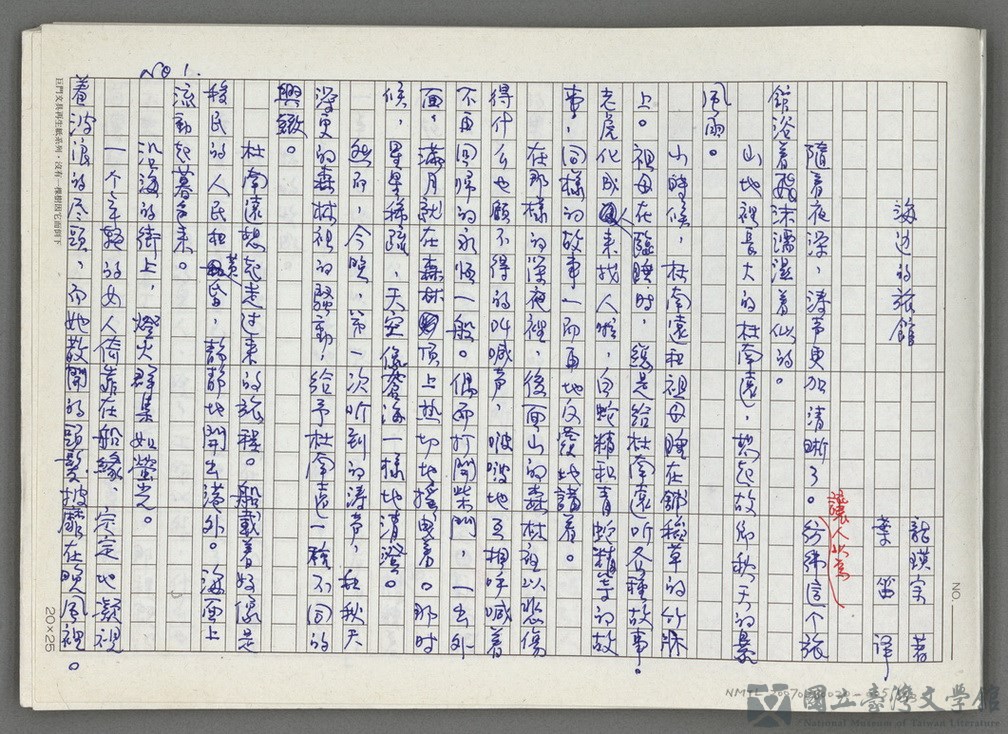 NO 1.
NO.
海边的旅館
龍瑛宗 著
葉笛 译
隨着夜深，涛声更加清晰了。彷彿這个旅
讓人以為
館浴着飛沫濡湿着似的。
山地裡長大的杜南遠，想起故鄉秋天的暴
風雨。
小時候，杜南遠和祖母睡在鋪稻草的竹床
上。祖母在臨睡时，總是給杜南遠听各種故事。
老虎化成人來找人啦，白蛇精和青蛇精等的故
事，同樣的故事一而再地反覆地講着。
在那樣的深夜裡，後面山的森林裡以悲傷
得什么也顧不得的叫喊声，啵啵地互相呼喊着
不再回歸的永恆一般。偶而打開柴門，一出外
面，滿月就在森林頂上熱切地搖曳着。那时
候，星星稀疏，天空像蒼海一樣地清澄。
然而，今晚，第一次听到的涛声，和秋天
深更的森林裡的騷動，給予杜南遠一種不同的
興緻。
杜南遠想起走过來的旅程。船載着好像是
移民的人民和黄昏，靜靜地開出港外。海面上
流動起暮色來。
沉沒海的街上，燈火群集如螢光。
一个年輕的女人倚靠在船緣，定定地凝視
着波浪的尽頭，而她散開的頭髮披靡在晚風裡。
巨門文具再生紙系列，沒有一棵樹因它而倒下
20×25
國立臺灣文學館
National Museum of Taiwan Literature